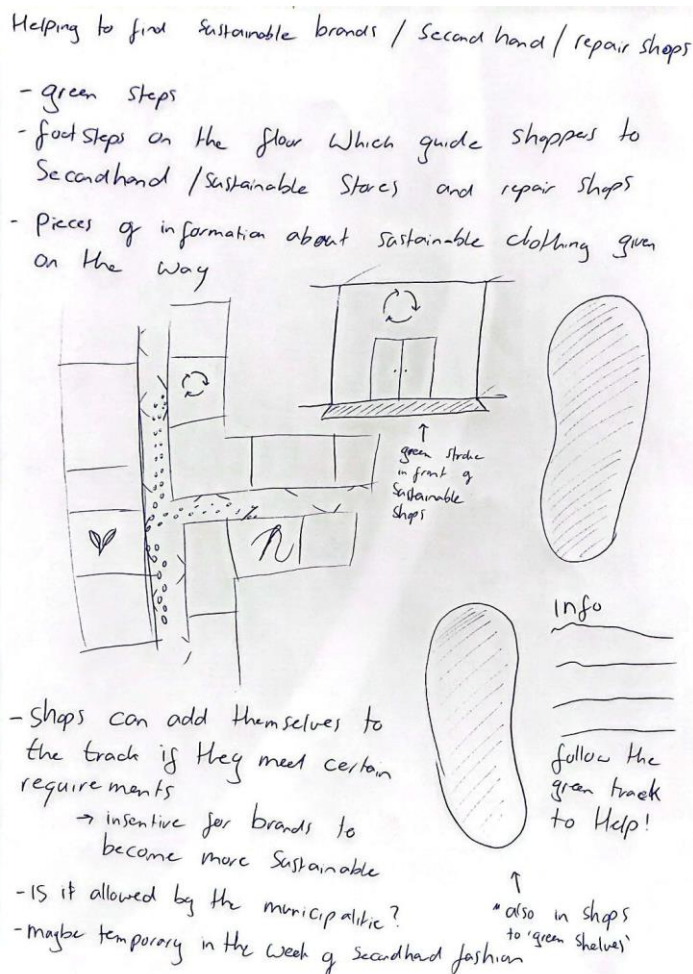 Helping to find sustainable brands / Second hand / repair shops
- green steps
- footsteps on the flour which guide shoppers to
Secondhand / Sustainable Stores and repair shops
- Pieces of information about sustainable clothing given
on the way
green stroke
in front of
Sustainable
shops
info
follow the
green track
to Help!
- shops can add themselves to
the track if they meet certain
requirements
→ insentive for brands to
become more Sustainable
- IS it allowed by the municipalitie?
- maybe temporary in the week of secondhand fashion
"also in shops
to 'green shelves'